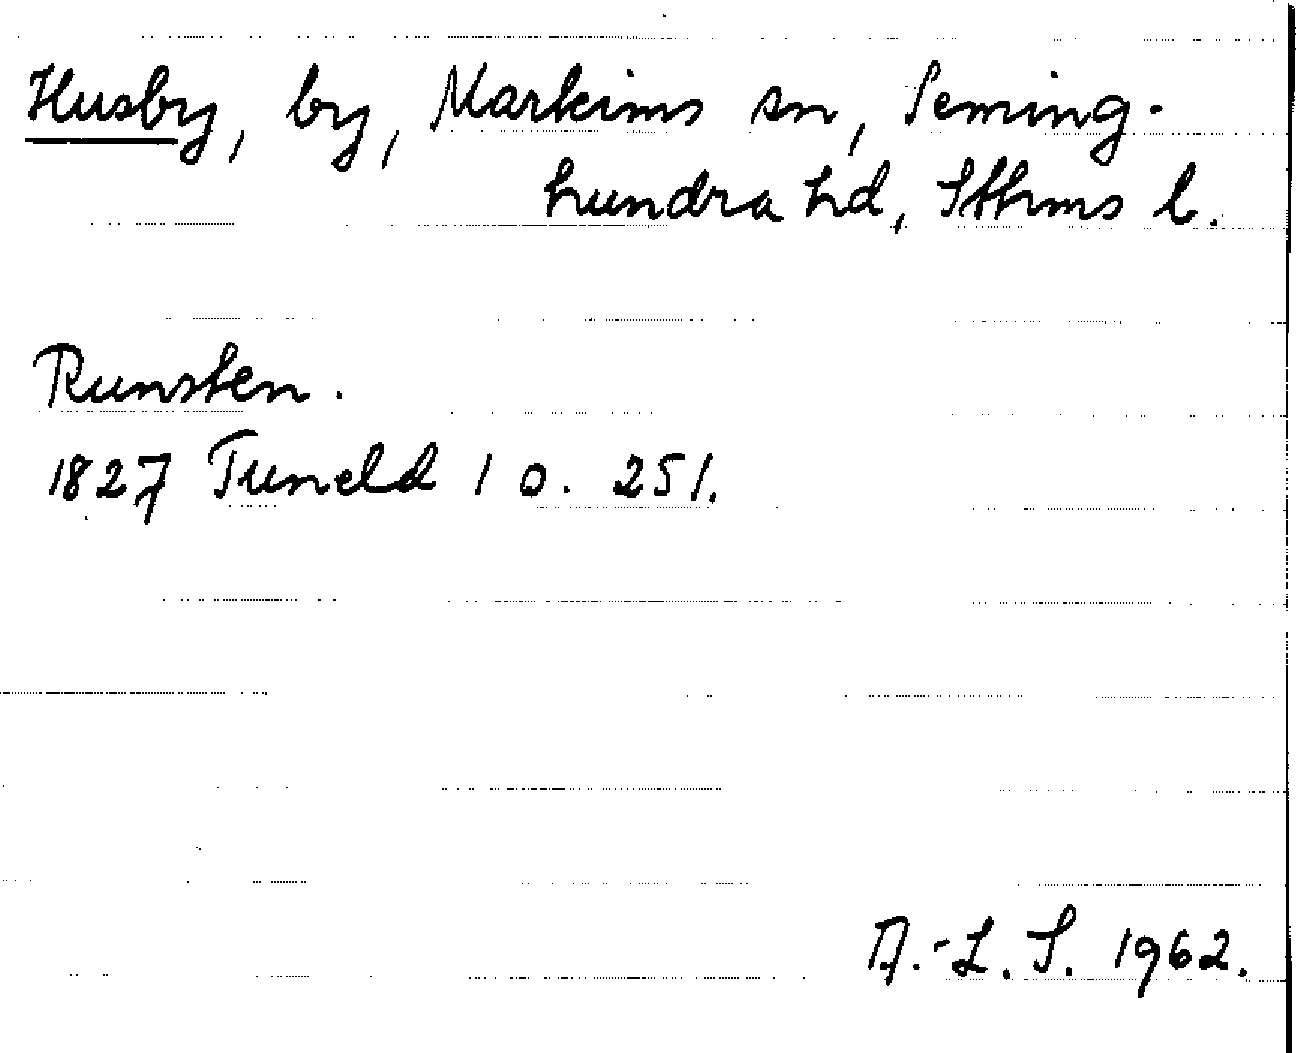 Husby, by, Markims sn, Seming-
hundra hd, Sthms l.
Runsten.
1827 Tuneld 1 s. 251.
A.-L. S. 1962.